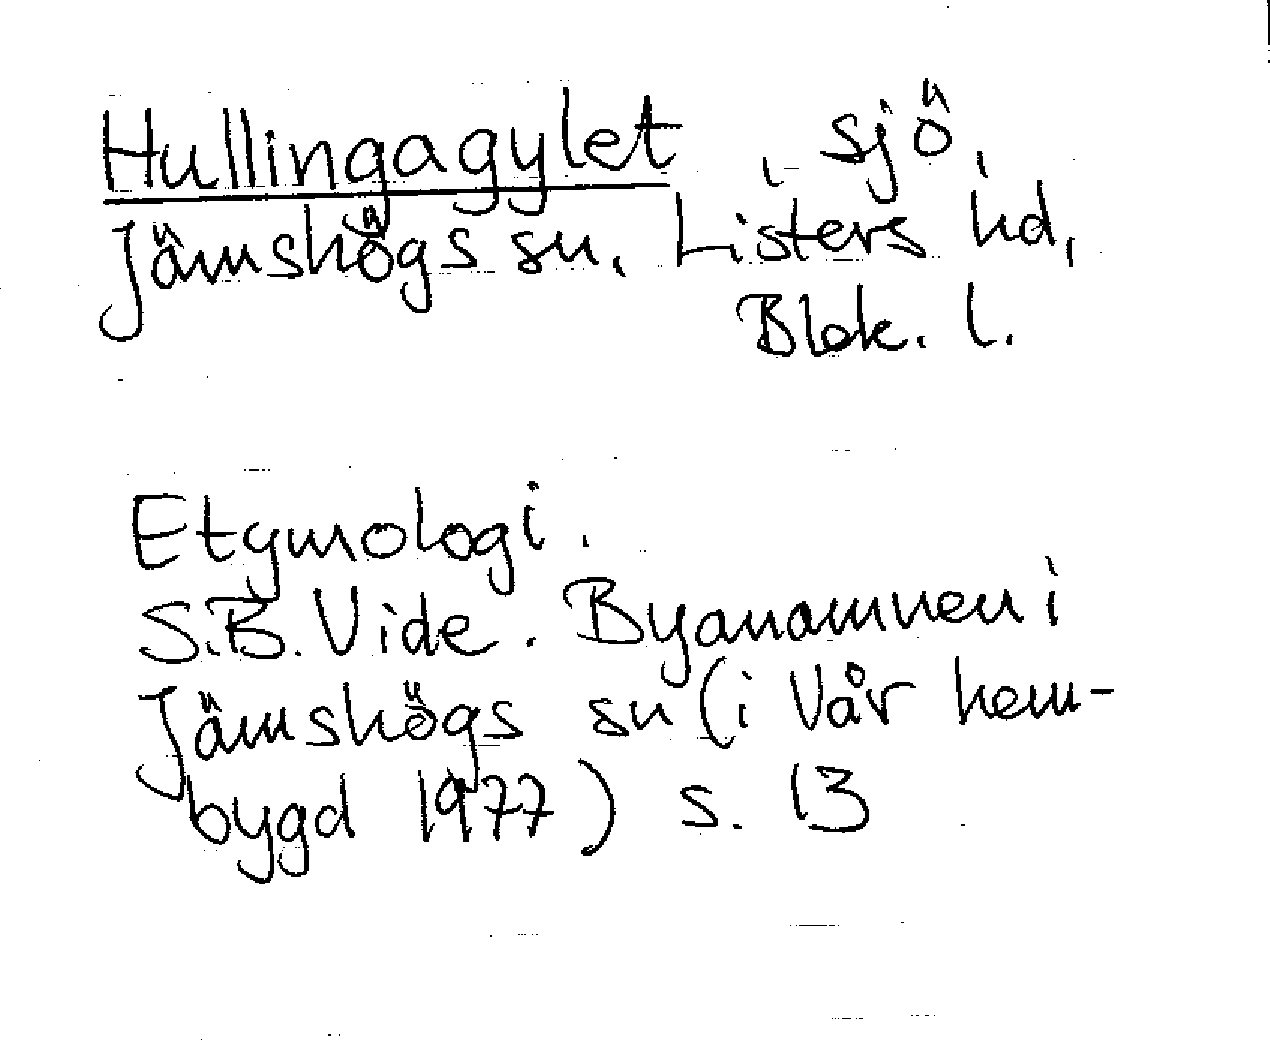 Hullingagylet, sjö,
Jämshögs sn, Listers hd,
Blek. l.
Etymologi.
S.B. Vide. Byanamnen i
Jämshögs sn (i Vår hem-
bygd 1977) s. 13